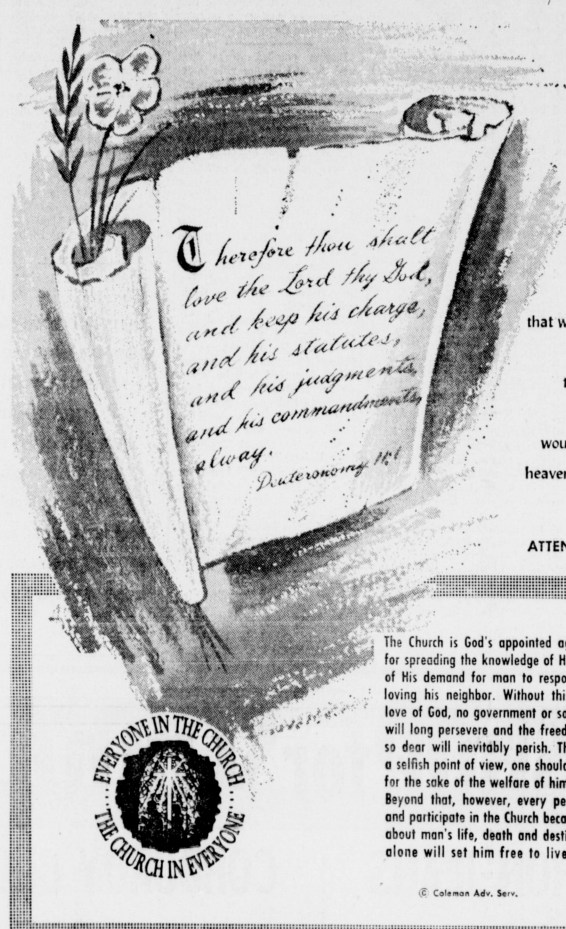 Therefore thou shalt
love the Lord thy God,
and keep his charge,
and his statutes,
and his judgments,
and his commandments,
alway.
Deuteronomy 11:1
that w
t
wou
heaven
ATTEN
The Church is God's appointed ag
for spreading the knowledge of H
of His demand for man to respo
loving his neighbor. Without thi
love of God, no government or so
will long persevere and the freed
so dear will inevitably perish. Th
a selfish point of view, one should
for the sake of the welfare of him
Beyond that, however, every pe
and participate in the Church beca
about man's life, death and desti
alone will set him free to live
EVERYONE IN THE CHURCH
THE CHURCH IN EVERYONE
© Coleman Adv. Serv.